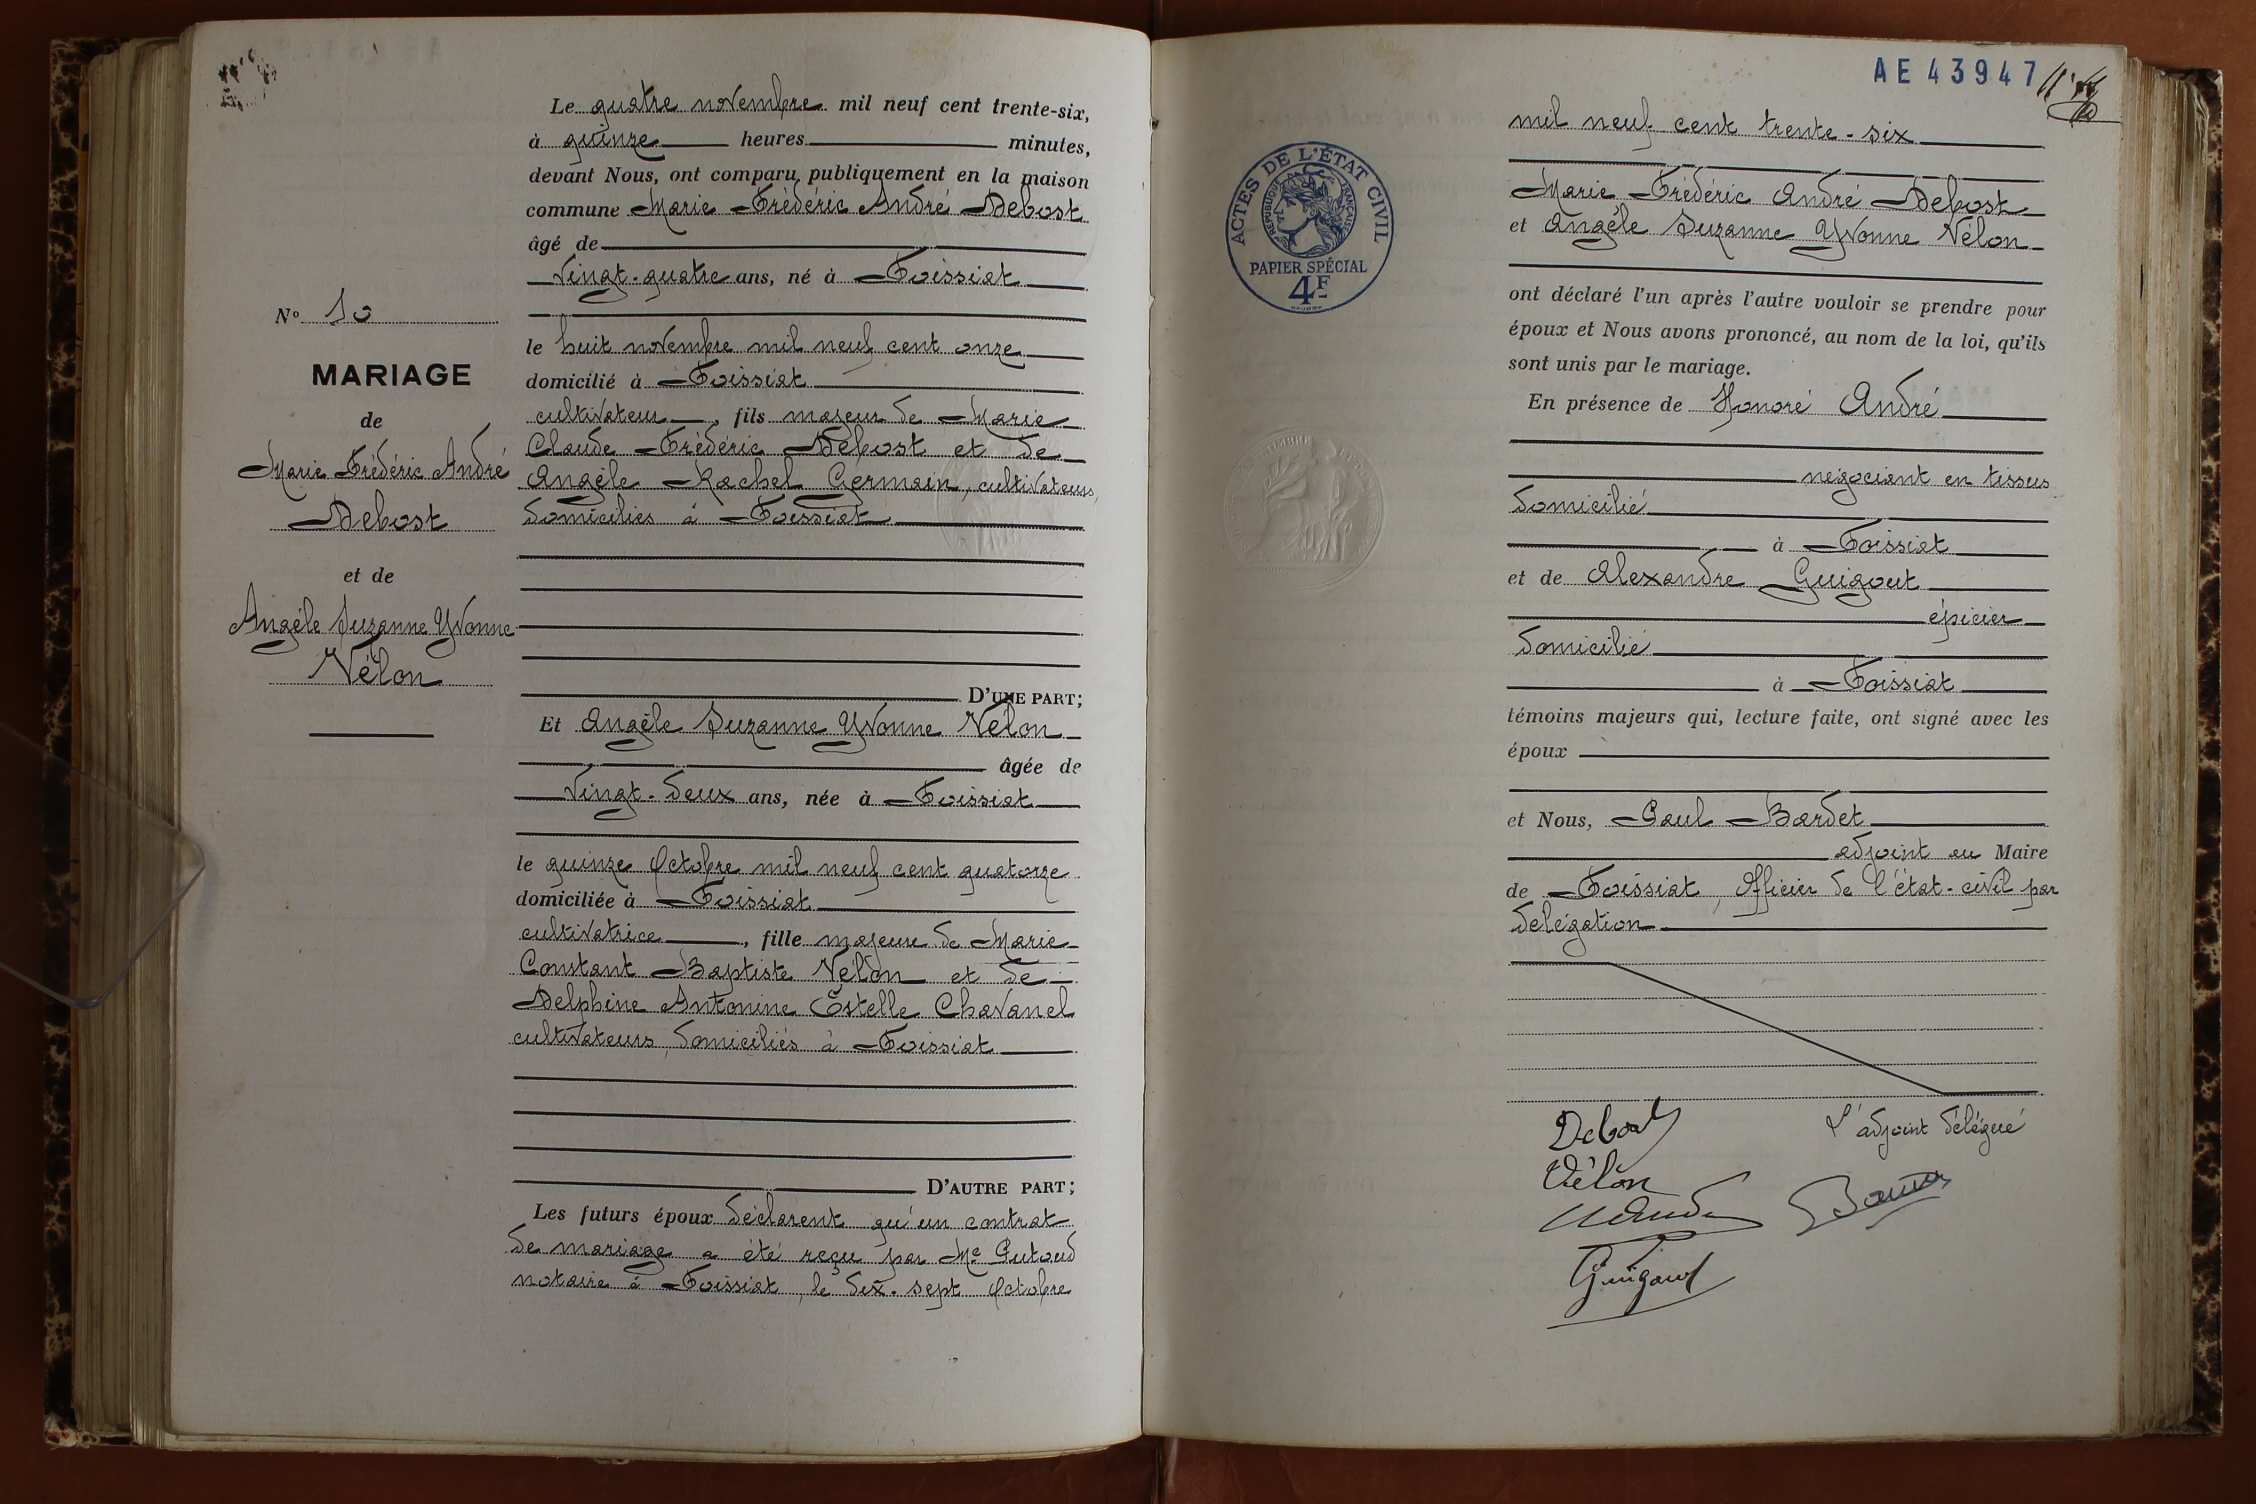 N° 10
MARIAGE
de
Marie Frédéric André
Debost
et de
Angèle Suzanne Yvonne
Vélon
Le quatre novembre mil neuf cent trente-six,
à quinze heures minutes,
devant Nous, ont comparu publiquement en la maison
commune Marie Frédéric André Debost
âgé de
vingt-quatre ans, né à Foissiat
le huit novembre mil neuf cent onze
domicilié à Foissiat
cultivateur, fils majeur de Marie
Claude Frédéric Debost et de
Angèle Rachel Germain, cultivateurs,
domiciliés à Foissiat
D'UNE PART;
Et Angèle Suzanne Yvonne Vélon
âgée de
vingt-deux ans, née à Foissiat
le quinze Octobre mil neuf cent quatorze
domiciliée à Foissiat
cultivatrice, fille majeure de Marie
Constant Baptiste Vélon et de
Delphine Antonine Estelle Chavanel
cultivateurs, domiciliés à Foissiat
D'AUTRE PART;
Les futurs époux déclarent qu'un contrat
de mariage a été reçu par Me Gutoud
notaire à Foissiat, le dix-sept Octobre
AE43947
mil neuf cent trente-six
ACTES DE L'ÉTAT CIVIL
RÉPUBLIQUE FRANÇAISE
PAPIER SPÉCIAL
4F
Marie Frédéric André Debost
et Angèle Suzanne Yvonne Vélon
ont déclaré l'un après l'autre vouloir se prendre pour
époux et Nous avons prononcé, au nom de la loi, qu'ils
sont unis par le mariage.
En présence de Honoré André
négociant en tissus
domicilié
à Foissiat
et de Alexandre Guigout
épicier
domicilié
à Foissiat
témoins majeurs qui, lecture faite, ont signé avec les
époux
et Nous, Paul Bardet
adjoint au Maire
de Foissiat, Officier de l'état-civil par
délégation
Debost
L'adjoint délégué
Vélon
Guigout